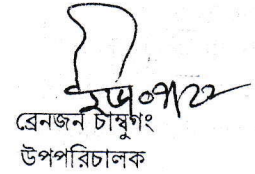 ব্রেনজন চাম্বুগং
উপপরিচালক